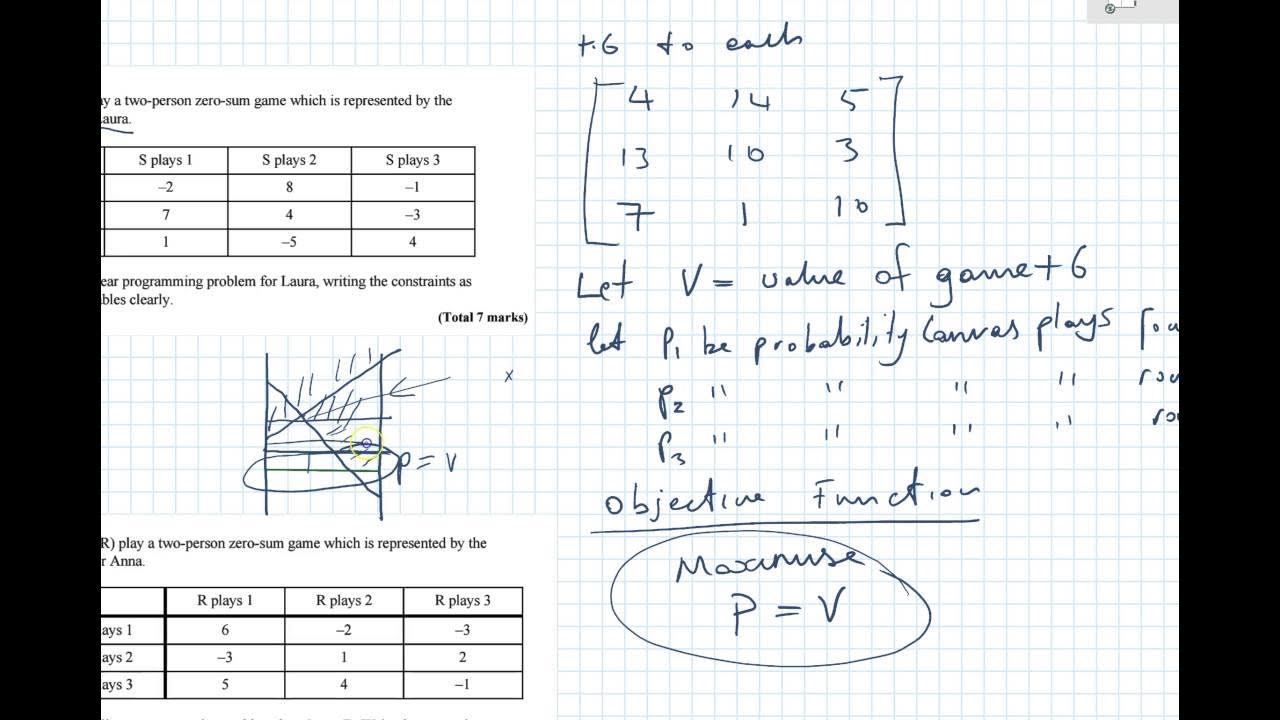 +6 to each
4 14 5
13 10 3
7 1 10
Let V = value of game + 6
let P1 be probability Canvas plays
P2 " " " "
P3 " " " "
Objective Function
Maximise
P = V
ay a two-person zero-sum game which is represented by the
aura.
S plays 1 S plays 2 S plays 3
–2 8 –1
7 4 –3
1 –5 4
ear programming problem for Laura, writing the constraints as
bles clearly.
(Total 7 marks)
x
P = V
R) play a two-person zero-sum game which is represented by the
r Anna.
R plays 1 R plays 2 R plays 3
ays 1 6 –2 –3
ays 2 –3 1 2
ays 3 5 4 –1